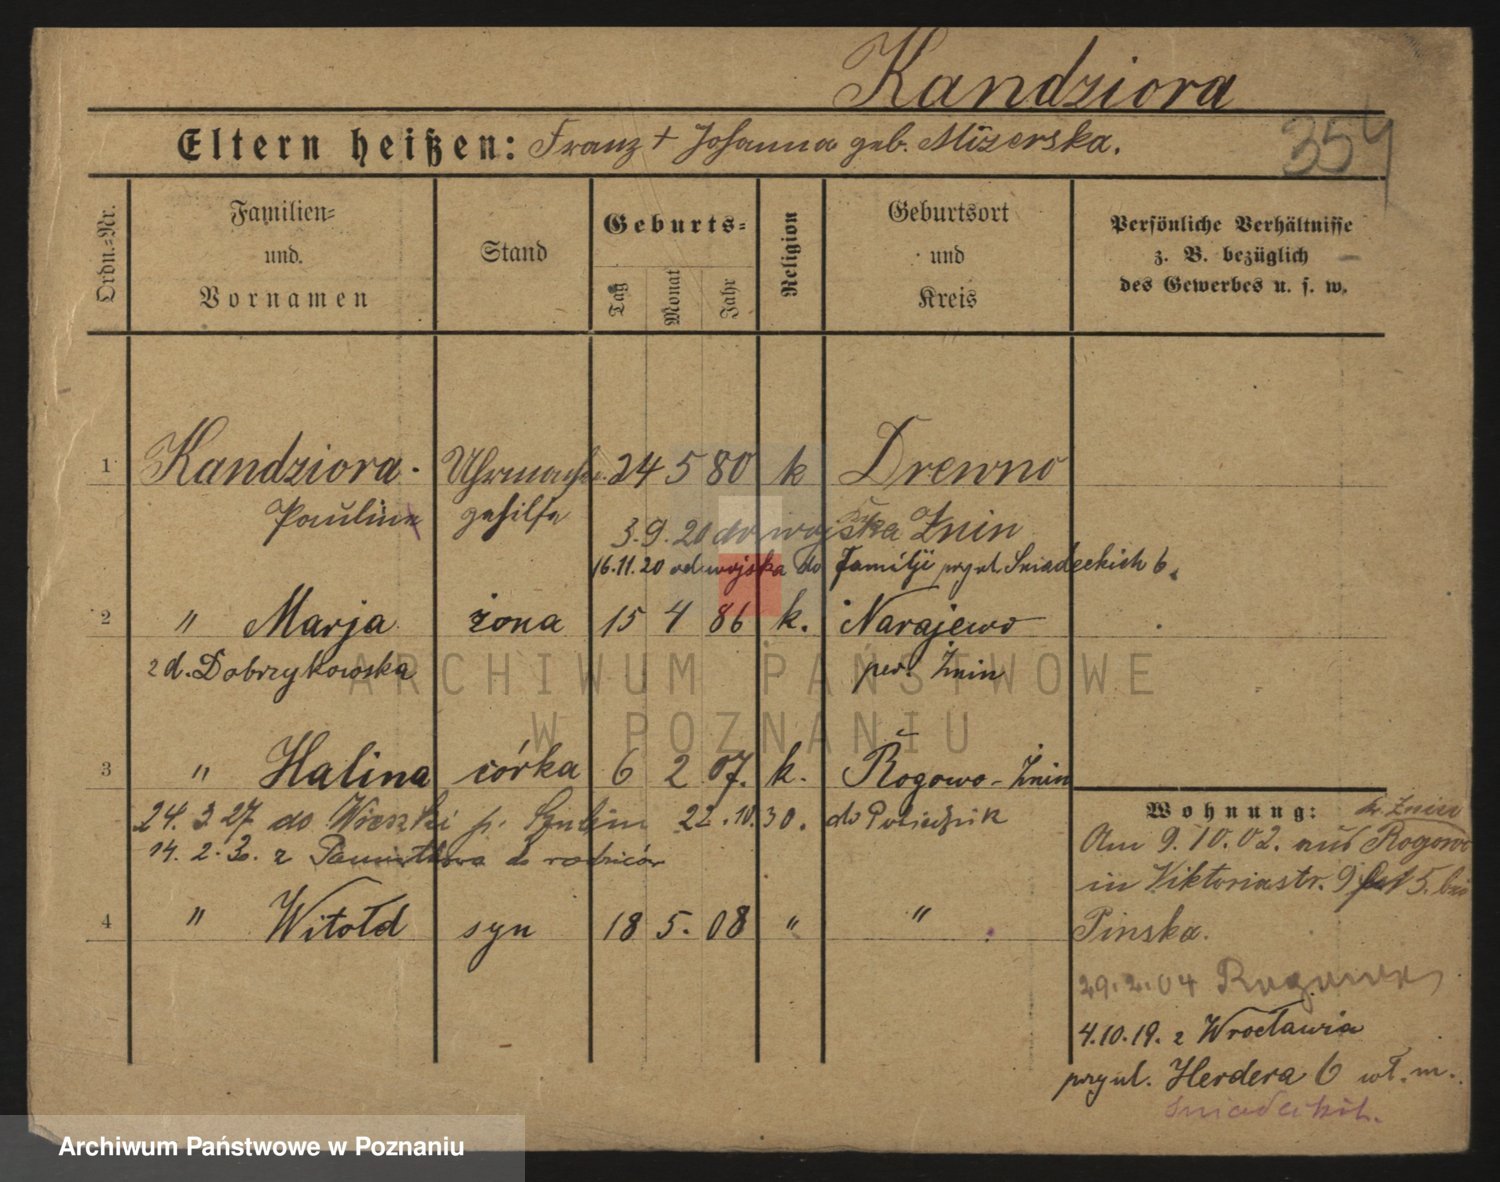 Kandziora
Eltern heißen: Franz + Johanna geb. Mizerska.
359
Ordn.=Nr.
Familien=
und
Vornamen
Stand
Geburts=
Tag
Monat
Jahr
Religion
Geburtsort
und
Kreis
Persönliche Verhältnisse
z. B. bezüglich
des Gewerbes u. s. w.
1 Kandziora. Uhrmacher 24 5 80 k Drewno
gehilfe
3.9.20 do wojska Żnin
16.11.20 od wojska do Familji przy ul. Sniadeckich 6.
2 " Marja żona 15 4 86 k. Narajewo
z d. Dobrzykowska pow. Żnin
3 " Halina córka 6 2 07. k. Rogowo - Żnin
24. 3. 27 do 22.10.30. do
14. 2. 3. z do rodziców
4 " Witołd syn 18 5. 08 " "
Wohnung: Żnin
Am 9.10.02. aus Rogowo
in Viktoriastr. 9 5. bei
Pinska.
29.2.04 Rogowo
4.10.19. z Wrocławia
przy ul. Herdera 6 wł. m.
Sniadeckich.
ARCHIWUM PAŃSTWOWE
W POZNANIU
Archiwum Państwowe w Poznaniu